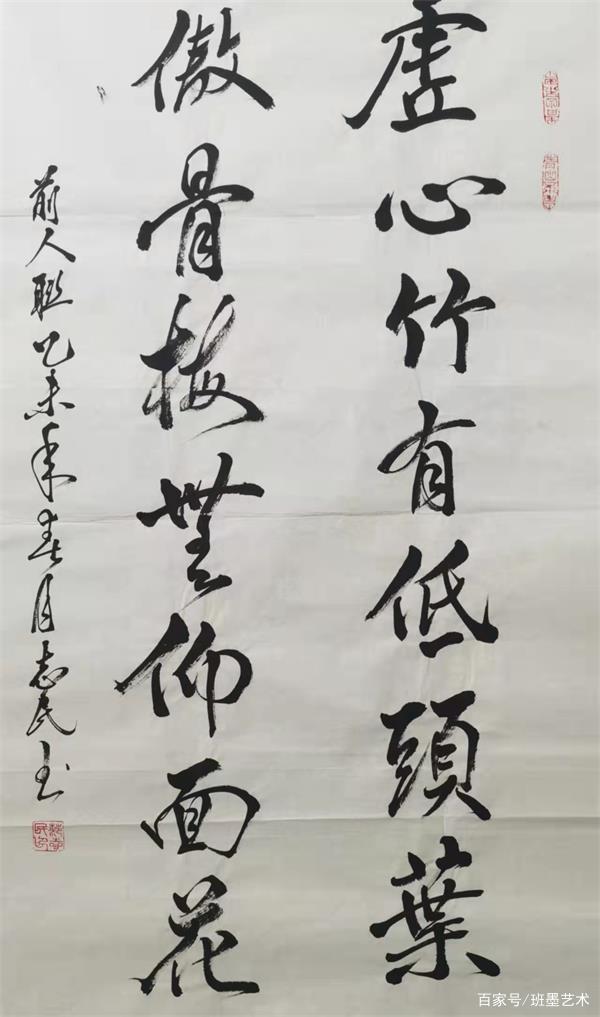 虛心竹有低頭葉
傲骨梅無仰面花
前人聯乙未年春月志民书
百家号/班墨艺术